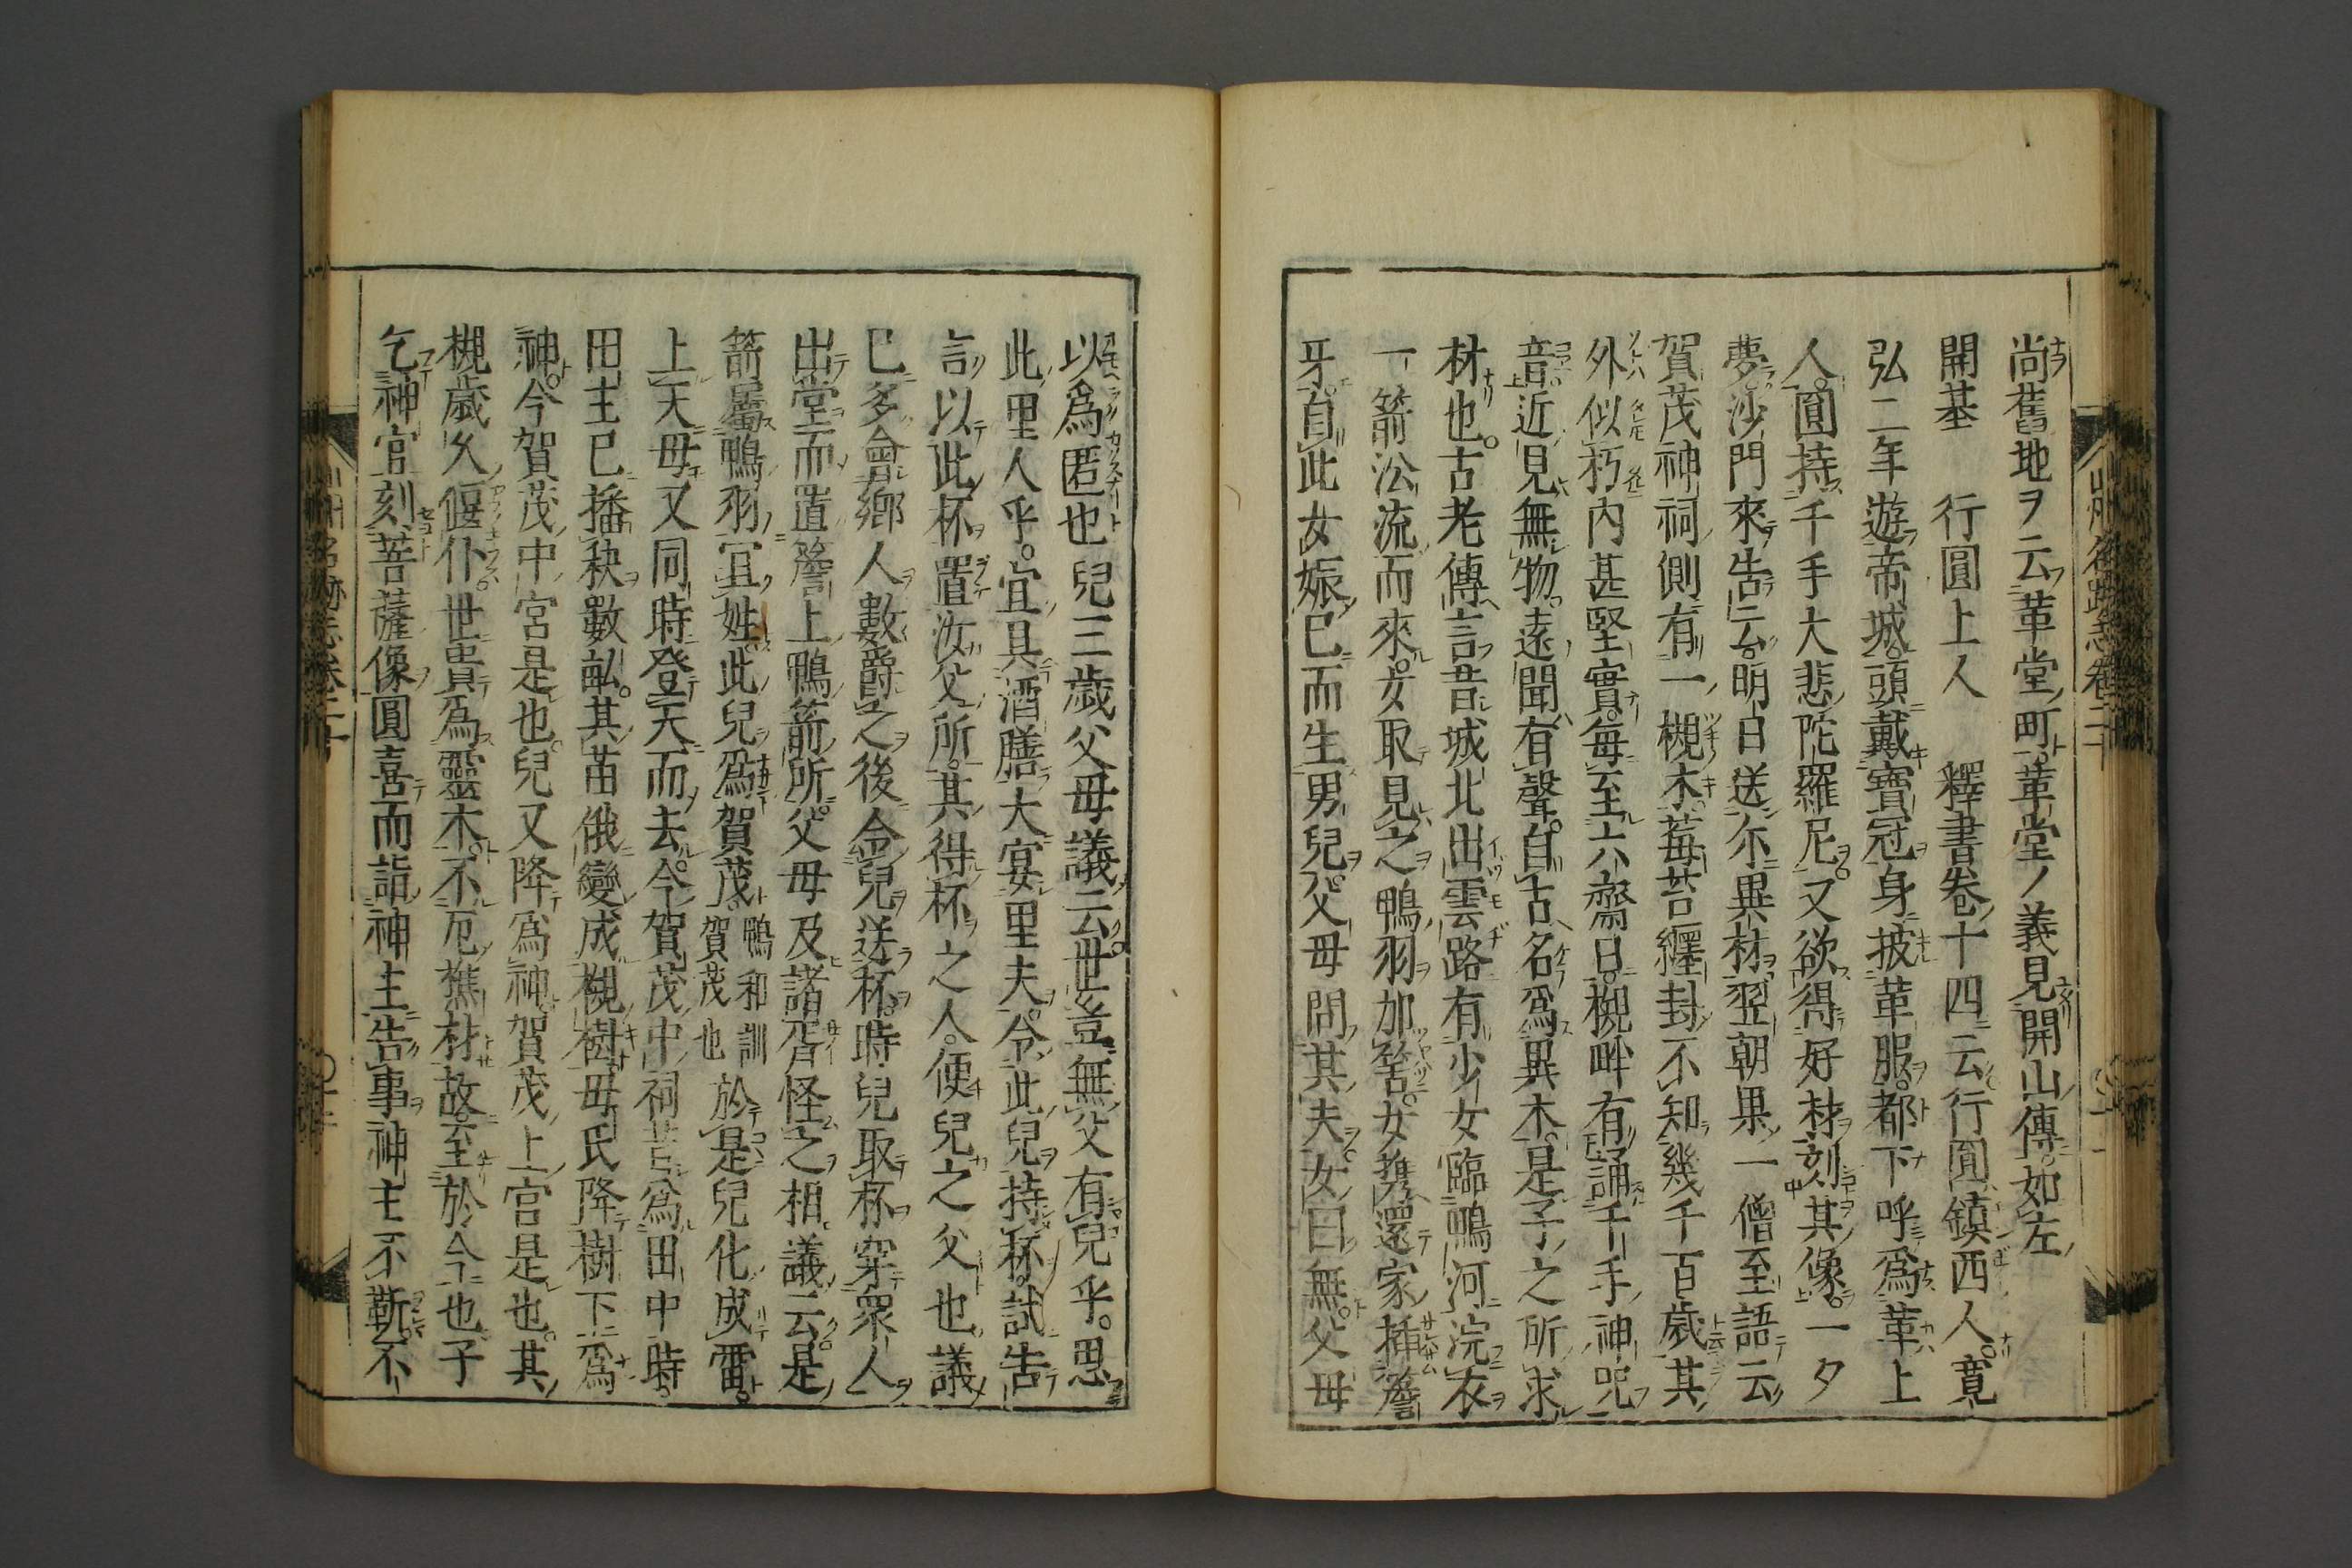 尚舊地ヲ云革堂町革堂ノ義見開山傳如左
開基　行圓上人　釋書卷十四云行圓鎮西人寛
弘二年遊帝城頭戴寶冠身披革服都下呼為革上
人圓持千手大悲陀羅尼又欲得好材刻其像一夕
夢沙門來告云明日送尓異材翌朝果一僧至語云
賀茂神祠側有一槻木莓苔纒封不知幾千百歳其
外似朽内甚堅實毎至六齋日槻畔有誦千手神呪
音近見無物遠聞有聲自古名為異木是予之所求
材也古老傳言昔城北出雲路有少女臨鴨河浣衣
一箭沿流而來女取見之鴨羽加筈女携還家插簷
牙自此女娠已而生男兒父母問其夫女曰無父母
以為匿也兒三歳父母議云世豈無父有兒乎思
此里人乎宜具酒膳大宴里夫令此兒持杯試告
言以此杯置汝父所其得杯之人便兒之父也議
已多會鄉人數爵之後令兒送杯時兒取杯穿衆人
出堂而置簷上鴨箭所父母及諸胥怪之相議云是
箭屬鴨羽宜姓此兒為賀茂鴨和訓賀茂也於是兒化成雷
上天母又同時登天而去今賀茂中祠昔為田中時
田主已播秧數畝其苗俄變成槻樹母氏降樹下為
神今賀茂中宮是也兒又降為神賀茂上宮是也其
槻歳久偃仆世貴為靈木不厄樵材故至於今也予
乞神官刻菩薩像圓喜而詣神主告事神主不靳不